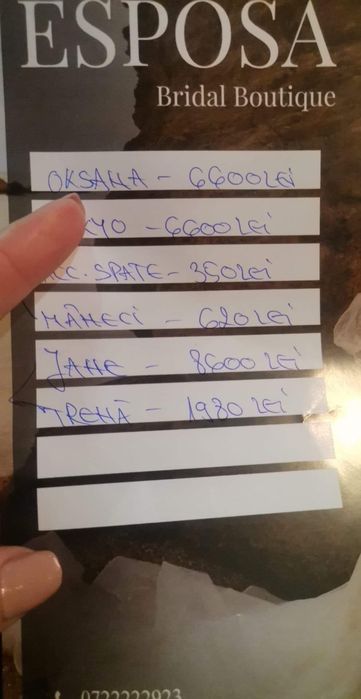 ESPOSA
Bridal Boutique
OKSANA - 6600 LEI
KYO - 6600 LEI
CC. SPATE - 350 LEI
MÂNECI - 620 LEI
JANE - 8600 LEI
TRENĂ - 1980 LEI
0722222923